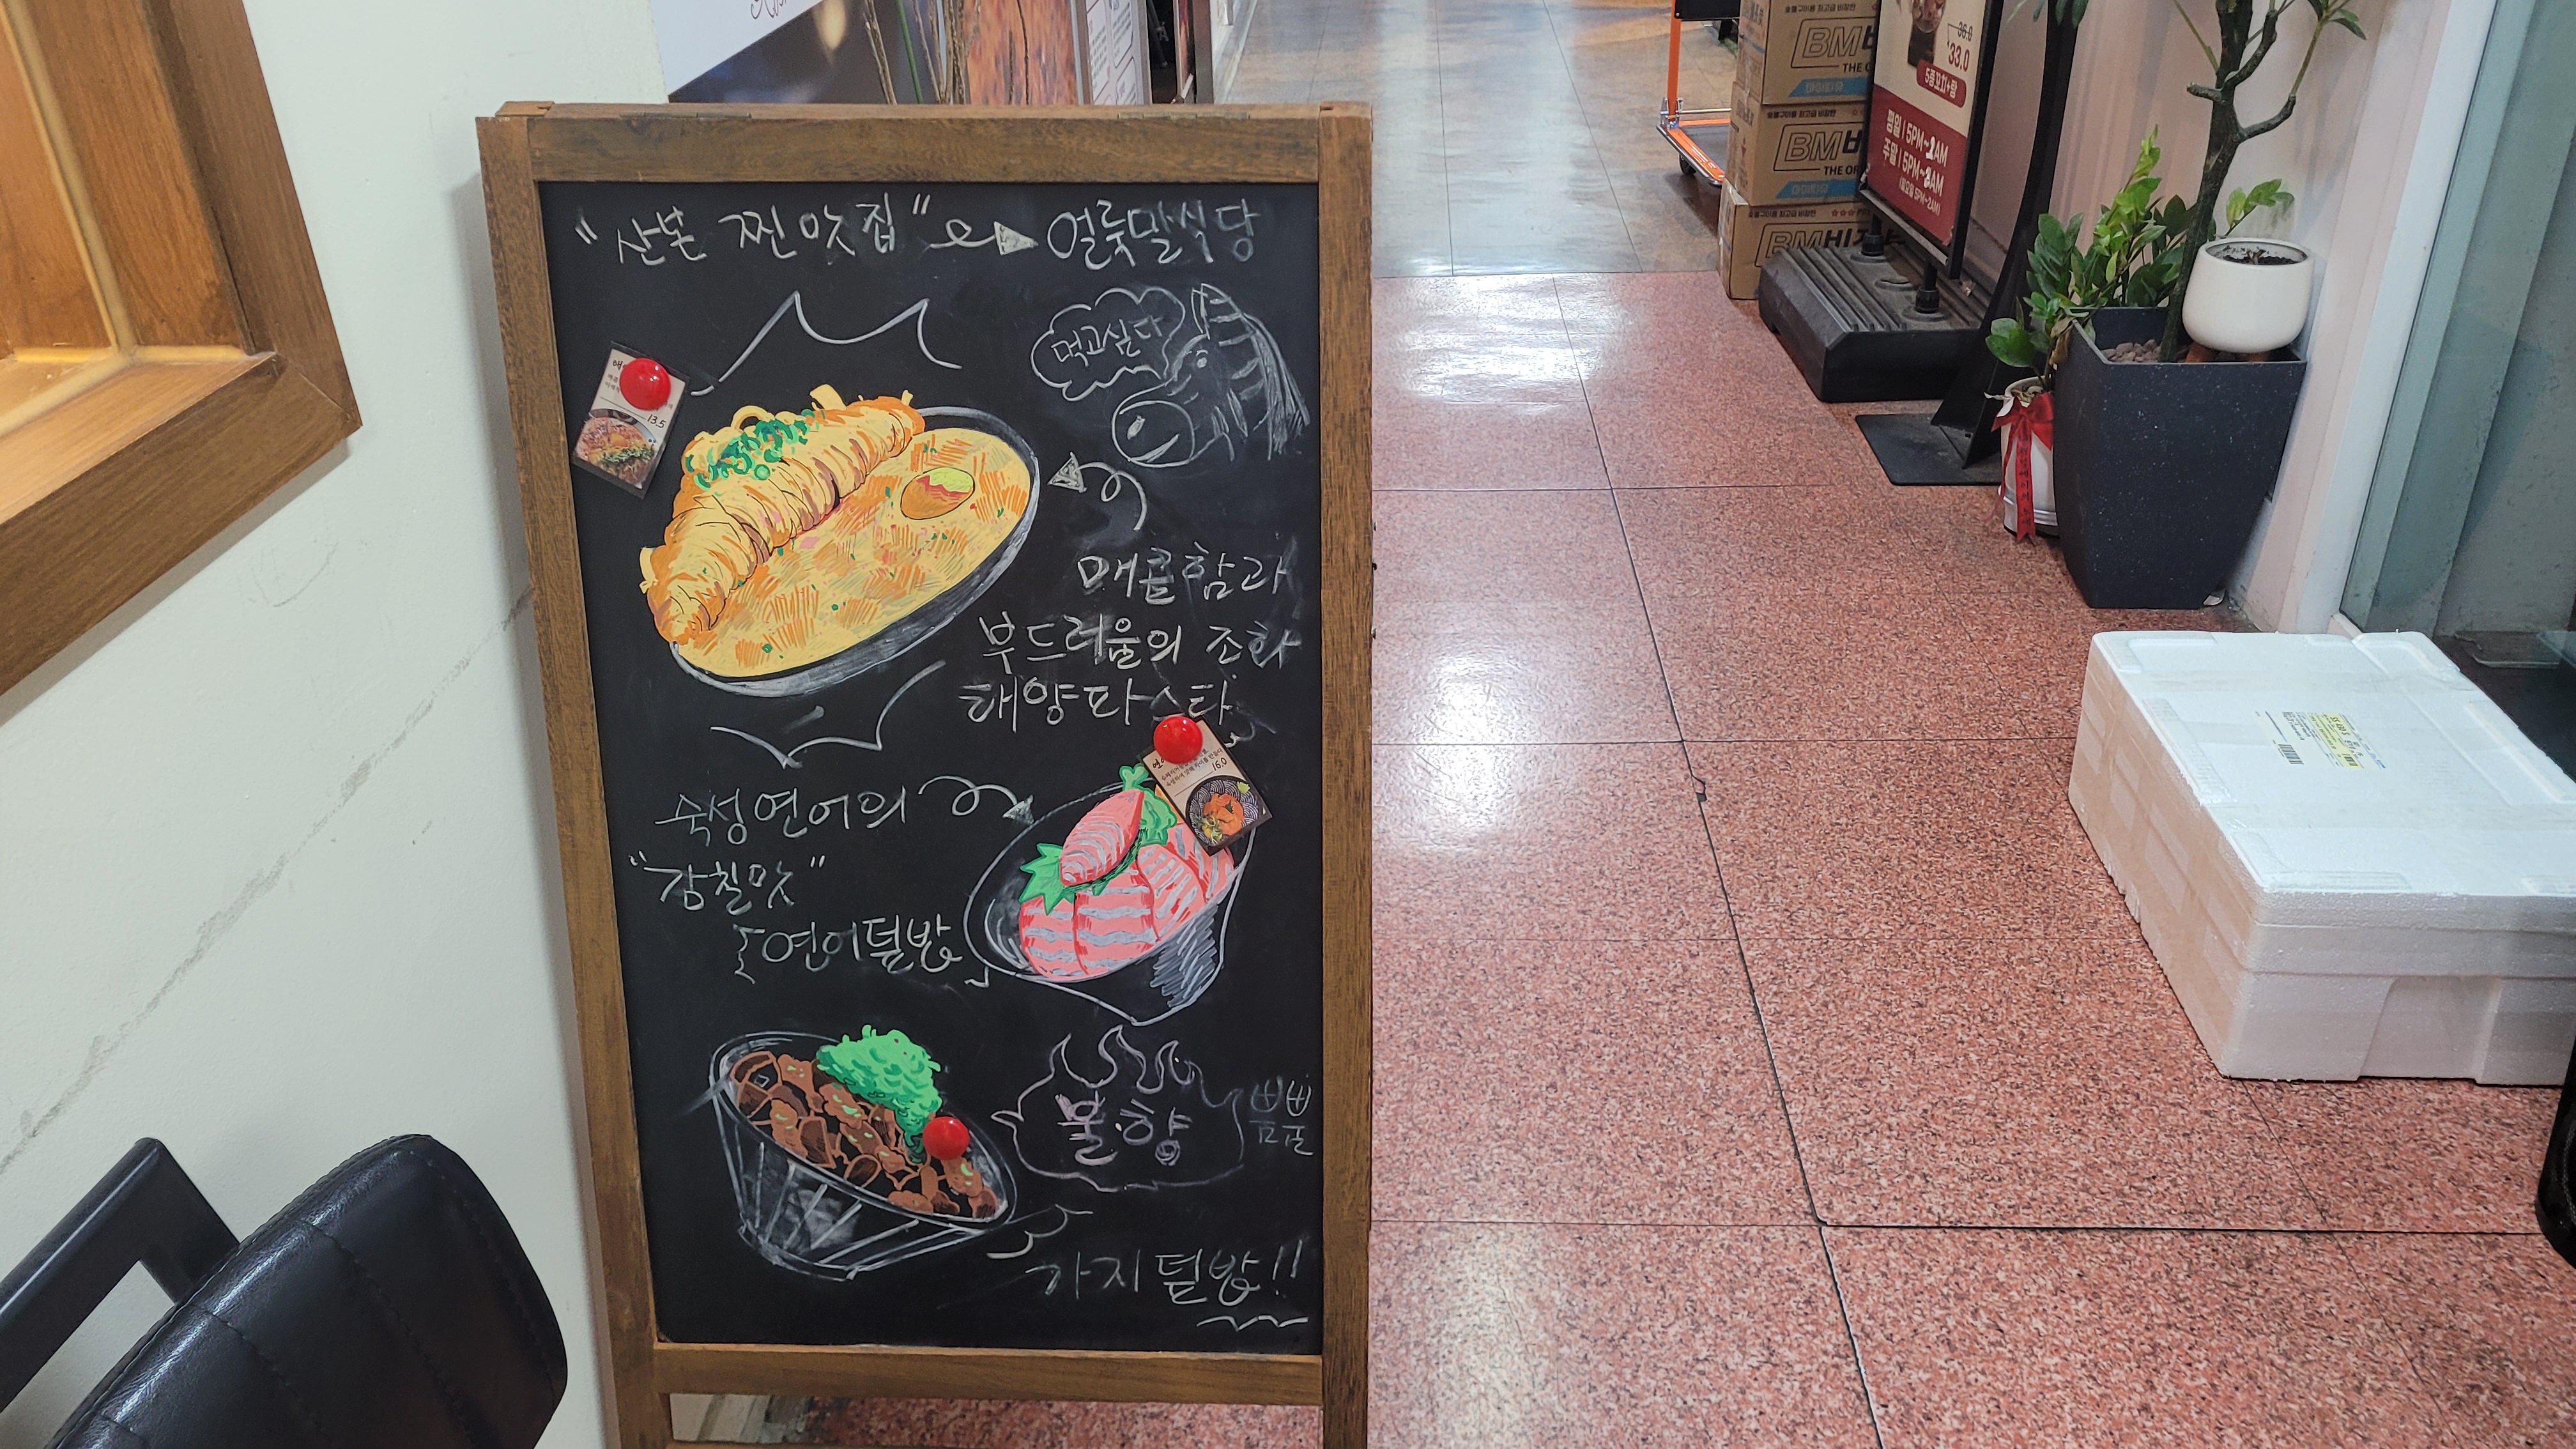 "산본 찐맛집" 얼룩말식당
먹고싶다
13.5
매콤함과
부드러움의 조화
태양파스타
16.0
숙성연어의
"감칠맛"
연어덮밥
불향
뿜뿜
가지덮밥!!
36.0
33.0
5종꼬치+탕
평일 | 5PM~
주말 | 5PM~
BM
THE
BM
THE
BM비